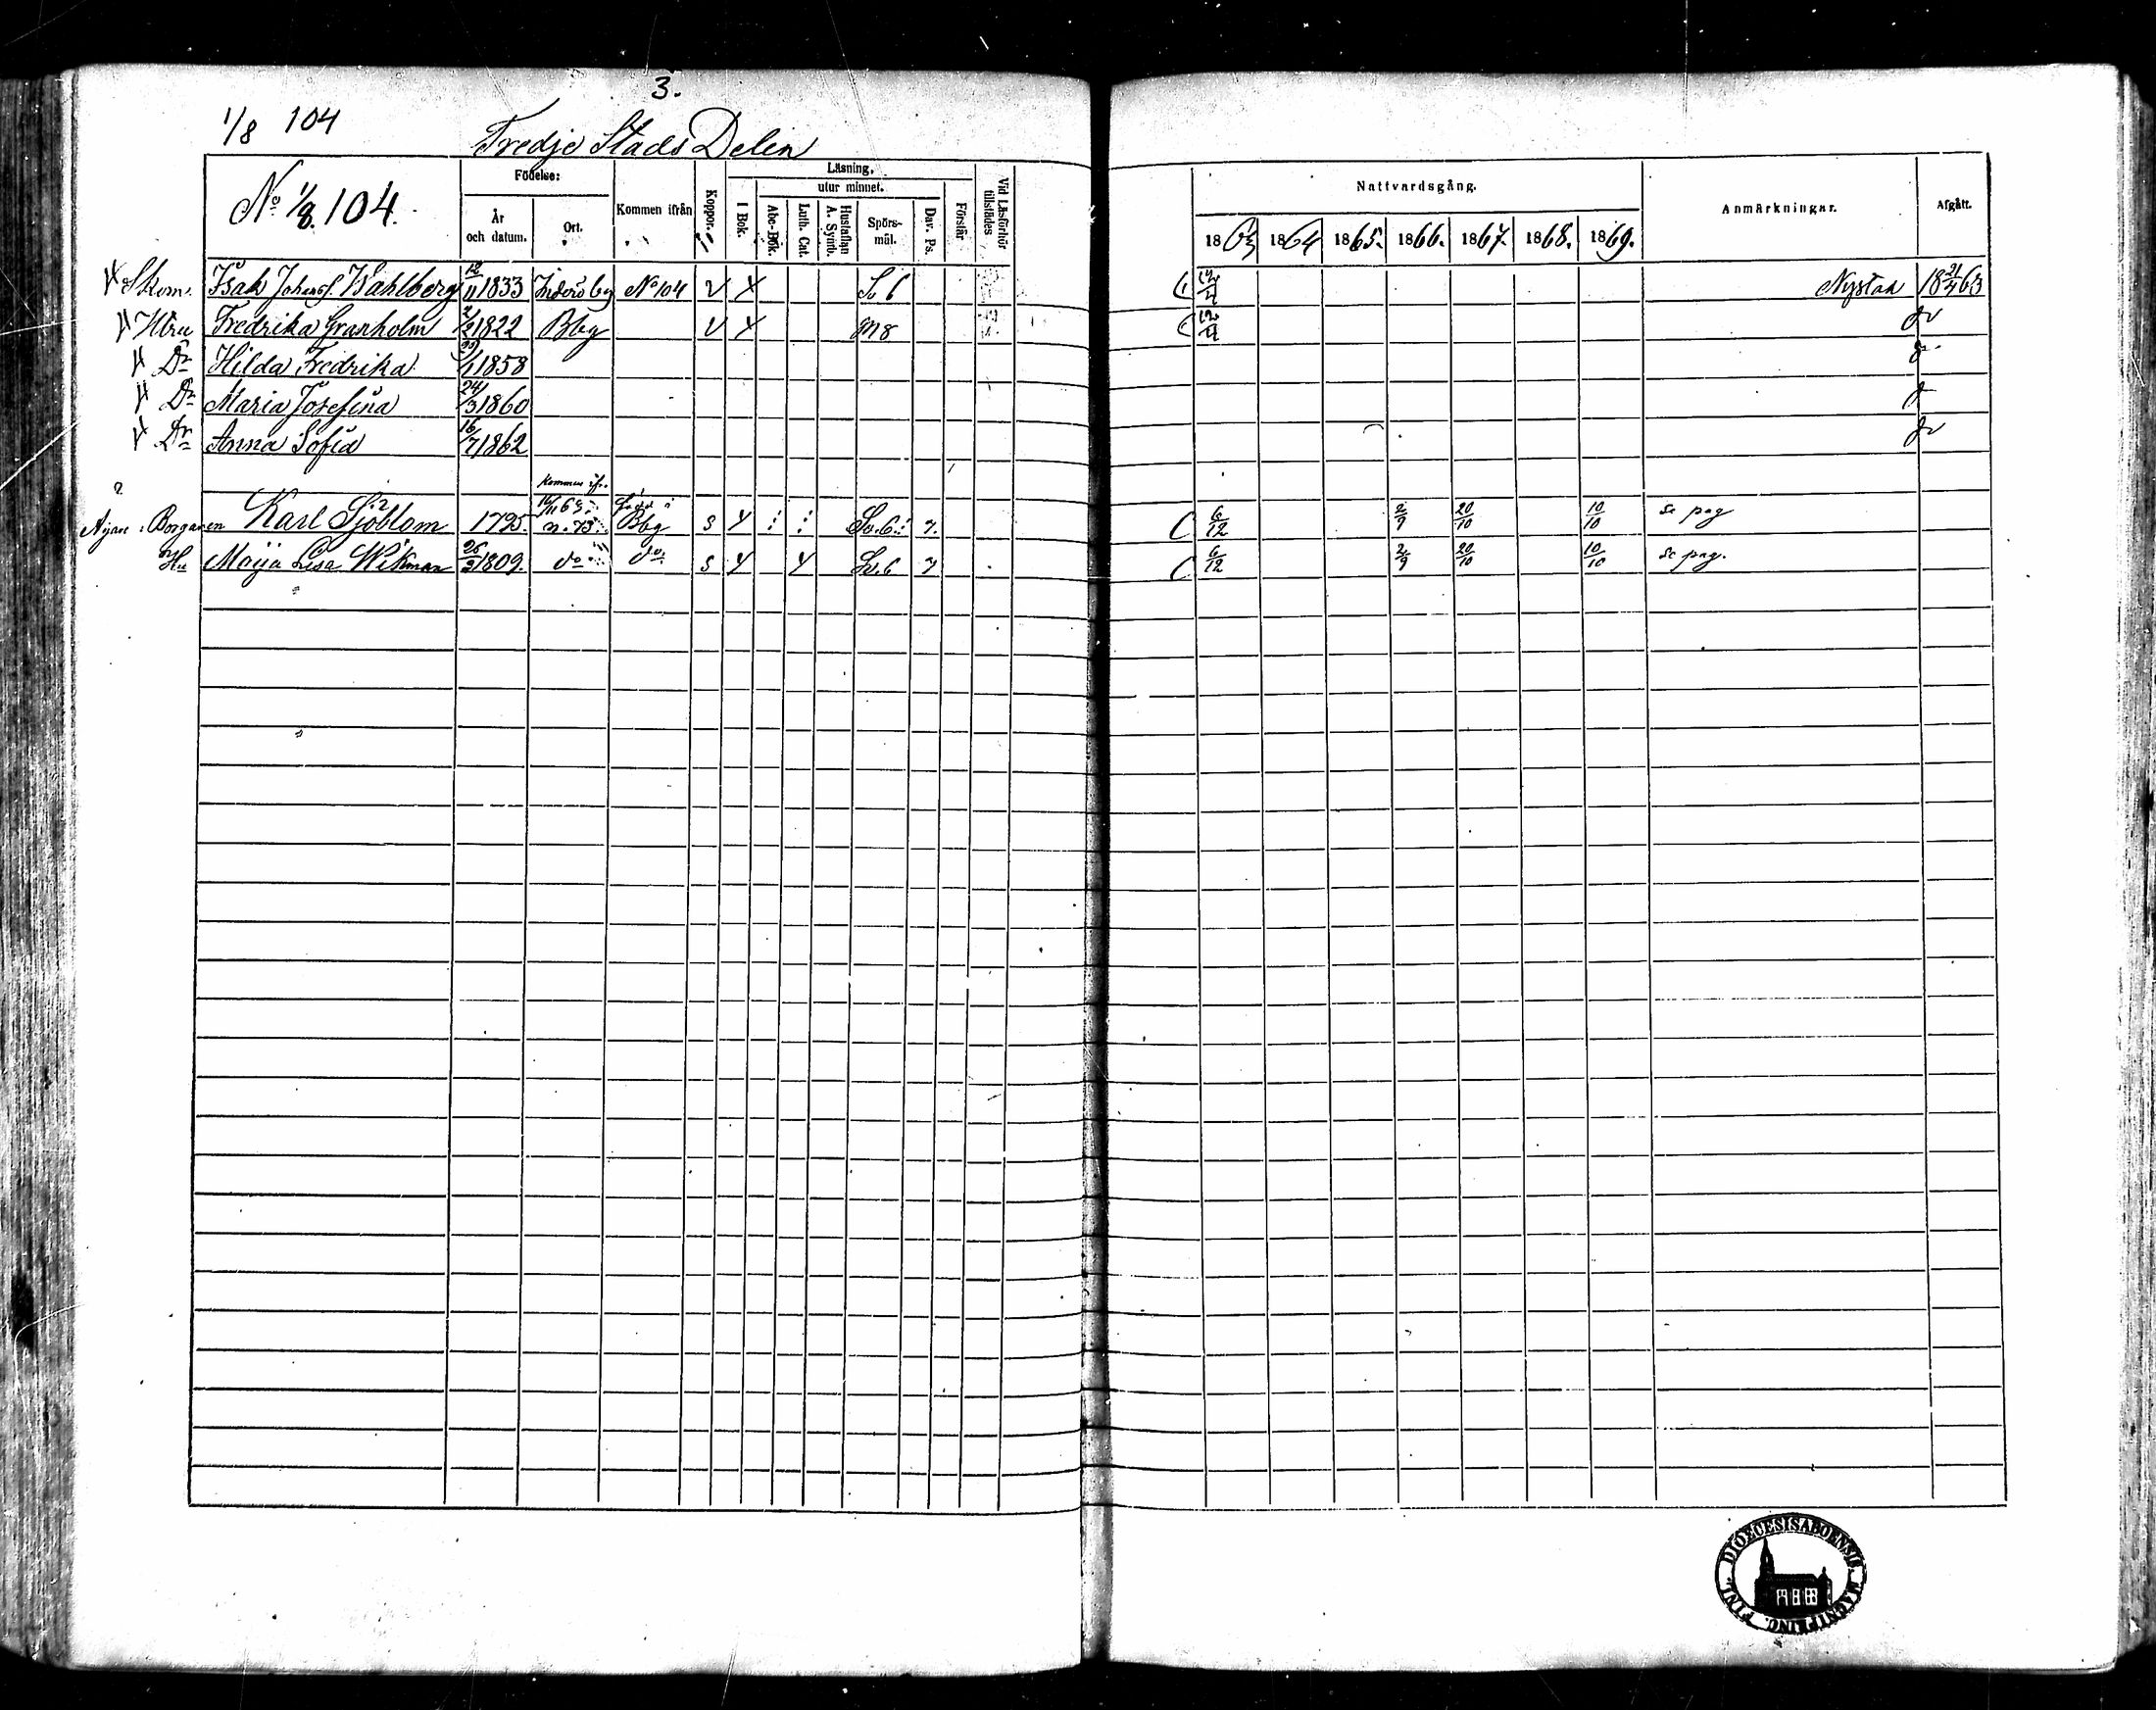 3.
1/8 104
Tredje Stads Delen
No 1/8. 104.
Födelse:
År och datum.
Ort.
Kommen ifrån
Koppor.
Läsning,
I Bok.
utur minnet.
Abc-Bok.
Luth. Cat.
Hustaflan A. Symb.
Spörs-mål.
Dav. Ps.
Förstår
Vid Läsförhör tillstädes
Nattvardsgång.
1863 1864 1865. 1866. 1867. 1868. 1869.
Anmärkningar.
Afgått.
Skom. Isak Johanss. Wahlberg 12/11 1833 Inderöby No 104 v x Sv 6 Nystad 18 21/4 63
Htru Fredrika Granholm 2/2 1822 Bbg v x M 8
Dr Hilda Fredrika 1858
Dr Maria Josefina 24/3 1860
Dr Anna Sofia 16/7 1862
Kommen ifr.
Borgaren Karl Sjöblom 1795. 16/11 63. n. 73. Född i Bbg s Sv. 6. 7. 6/12 2/9 20/10 10/10 se pag
Hu Maija Lisa Wikman 26/3 1809. do do s Sv. 6 7 6/12 2/9 20/10 10/10 se pag.
DIOECESIS ABOENSIS
FINL.